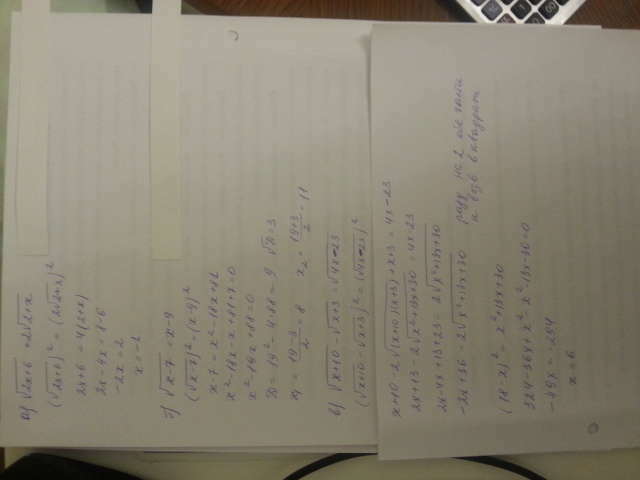 а) √2x+6 = 2√2+x
(√2x+6)² = (2√2+x)²
2x+6 = 4(2+x)
2x-4x = 8-6
-2x = 2
x = -1
√x-7 = x-9
(√x-7)² = (x-9)²
x-7 = x²-18x+81
x²-18x-x+81+7=0
x²-19x+88=0
D = 19²-4·88 = 9 √D = 3
x₁ = 19-3/2 = 8 x₂ = 19+3/2 = 11
в) √x+10 - √x+3 = √4x-23
(√x+10 - √x+3)² = (√4x-23)²
x+10-2√(x+10)(x+3)+x+3 = 4x-23
2x+13-2√x²+13x+30 = 4x-23
2x-4x+13+23 = 2√x²+13x+30
-2x+36 = 2√x²+13x+30 на 2 обе части
и возв в квадрат
(18-x)² = x²+13x+30
324-36x+x²-x²-13x-30=0
-49x = -294
x = 6